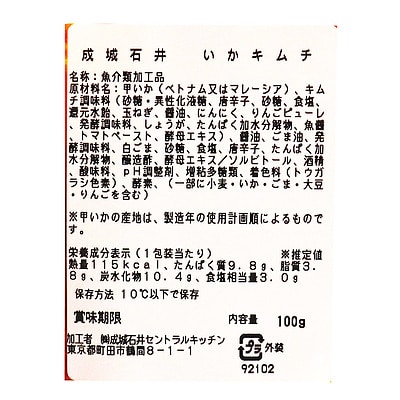 成城石井　いかキムチ
名称：魚介類加工品
原材料名：甲いか（ベトナム又はマレーシア）、キム
チ調味料（砂糖・異性化液糖、唐辛子、砂糖、食塩、
還元水飴、玉ねぎ、醤油、にんにく、りんごピューレ
、発酵調味料、しょうが、たんぱく加水分解物、魚醤
、トマトペースト、酵母エキス）、醤油、ごま油、発
酵調味料、白ごま、砂糖、食塩、唐辛子、たんぱく加
水分解物、醸造酢、酵母エキス／ソルビトール、酒精
、酸味料、ｐＨ調整剤、増粘多糖類、着色料（トウガ
ラシ色素）、酵素、（一部に小麦・いか・ごま・大豆
・りんごを含む）
※甲いかの産地は、製造年の使用計画順によるもので
す。
栄養成分表示（１包装当たり）　※推定値
熱量１１５ｋｃａｌ、たんぱく質９．８ｇ、脂質３．
８ｇ、炭水化物１０．４ｇ、食塩相当量３．０ｇ
保存方法 １０℃以下で保存
賞味期限　内容量　100g
加工者 ㈱成城石井セントラルキッチン
東京都町田市鶴間８－１－１
プラ 外装
92102